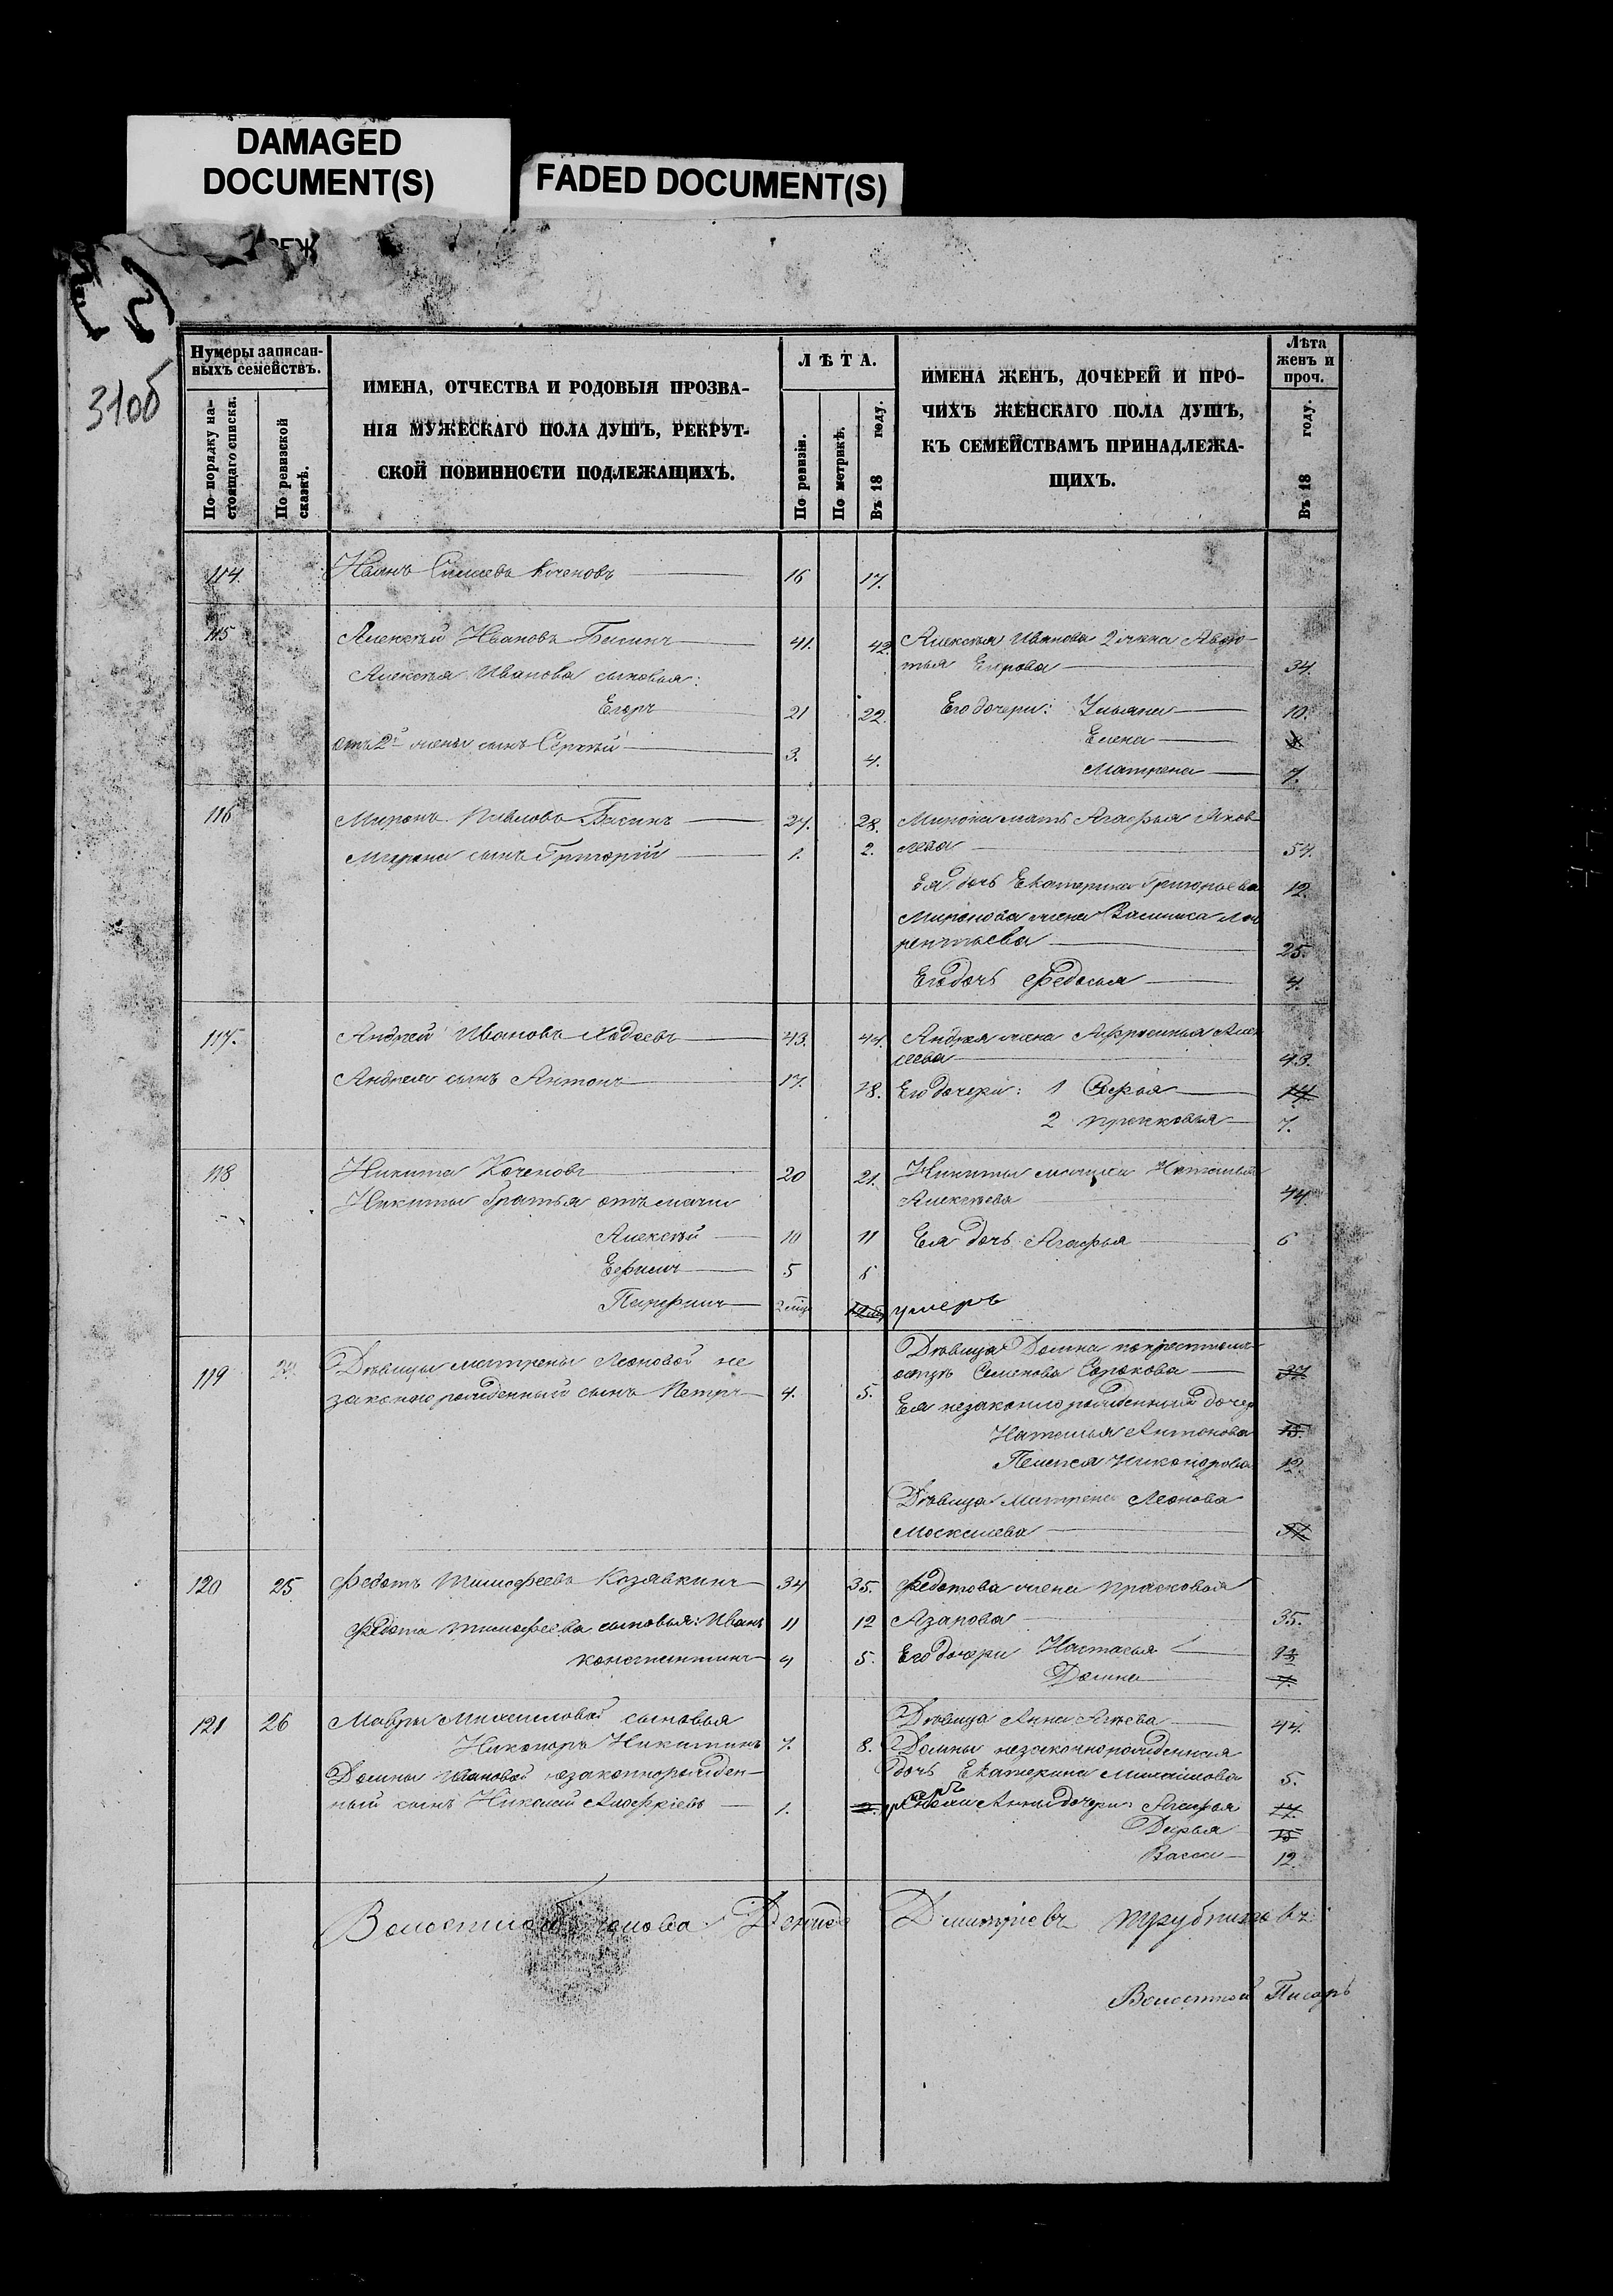 DAMAGED
DOCUMENT(S)
FADED DOCUMENT(S)
310б
Нумеры записан-
ныхъ семействъ.
По порядку на-
стоящаго списка.
По ревизской
сказкѣ.
ИМЕНА, ОТЧЕСТВА И РОДОВЫЯ ПРОЗВА-
НІЯ МУЖЕСКАГО ПОЛА ДУШЪ, РЕКРУТ-
СКОЙ ПОВИННОСТИ ПОДЛЕЖАЩИХЪ.
ЛѢТА.
По ревизіи.
По метрикѣ.
Въ 18 году.
ИМЕНА ЖЕНЪ, ДОЧЕРЕЙ И ПРО-
ЧИХЪ ЖЕНСКАГО ПОЛА ДУШЪ,
КЪ СЕМЕЙСТВАМЪ ПРИНАДЛЕЖА-
ЩИХЪ.
Лѣта
женъ и
проч.
Въ 18 году.
114. Иванъ Коченовъ 16 17.
115 Алексѣй Ивановъ Басинъ 41. 42. Алексѣя Иванова 2 жена Авдо-
тья Егорова 34.
Алексѣя Иванова сыновья:
Егоръ 21 22. Его дочери: Ульяна 10.
отъ 2й жены сынъ Сергѣй 3. 4. Елена
Матрена 7.
116 Миронъ Павловъ Басинъ 27. 28. Мирона мать Агафья Яков-
лева 54.
Мирона сынъ Григорій 1. 2.
Ея дочь Екатерина Григорьева 12.
Миронова жена Василиса Лав
рентьева 25.
Его дочь Федосья 4.
117. Андрей Ивановъ 43. 44. Андрея жена Афросинья Алек
сеева 43.
Андрея сынъ Антонъ 17. 18. Его дочери: 1 Софья 14
2 Прасковья 7.
118 Никита Коченовъ 20 21. Никиты мачиха Наталья
Алексѣева 44
Никиты братья отъ мачи
Алексѣй 10 11 Ея дочь Агафья 6
Ефимъ 5
Парфинъ умеръ
119 24. Дѣвицы Матрены Леоновой не
законно рожденный сынъ Петръ 4. 5.
Дѣвица Домна по крестному
отцу Семенова
Ея незаконно рожденныя дочер
Наталья Антонова 15.
Пелагея Никонорова 12.
Дѣвица Матрена Леонова
120 25 Федотъ Тимофеевъ Козявкинъ 34 35. Федотова жена Прасковья
Азарова 35.
Федота Тимофеева сыновья: Иванъ 11 12
Константинъ 4 5. Его дочери Настасья
Домна 7.
121 26 Мавры Михайловой сыновья
Никоноръ Никитинъ 7. 8. Дѣвица Анна 44.
Домны незаконнорожденная
дочь Екатерина Михайлова 5.
Домны Ивановой незаконнорожден-
ный сынъ Николай 1. 2. умеръ
Анны дочери Агафья 17.
Дарья 15
Васса 12.
Волостной Голова Денисъ Дмитріевъ Трубниковъ
Волостной Писарь